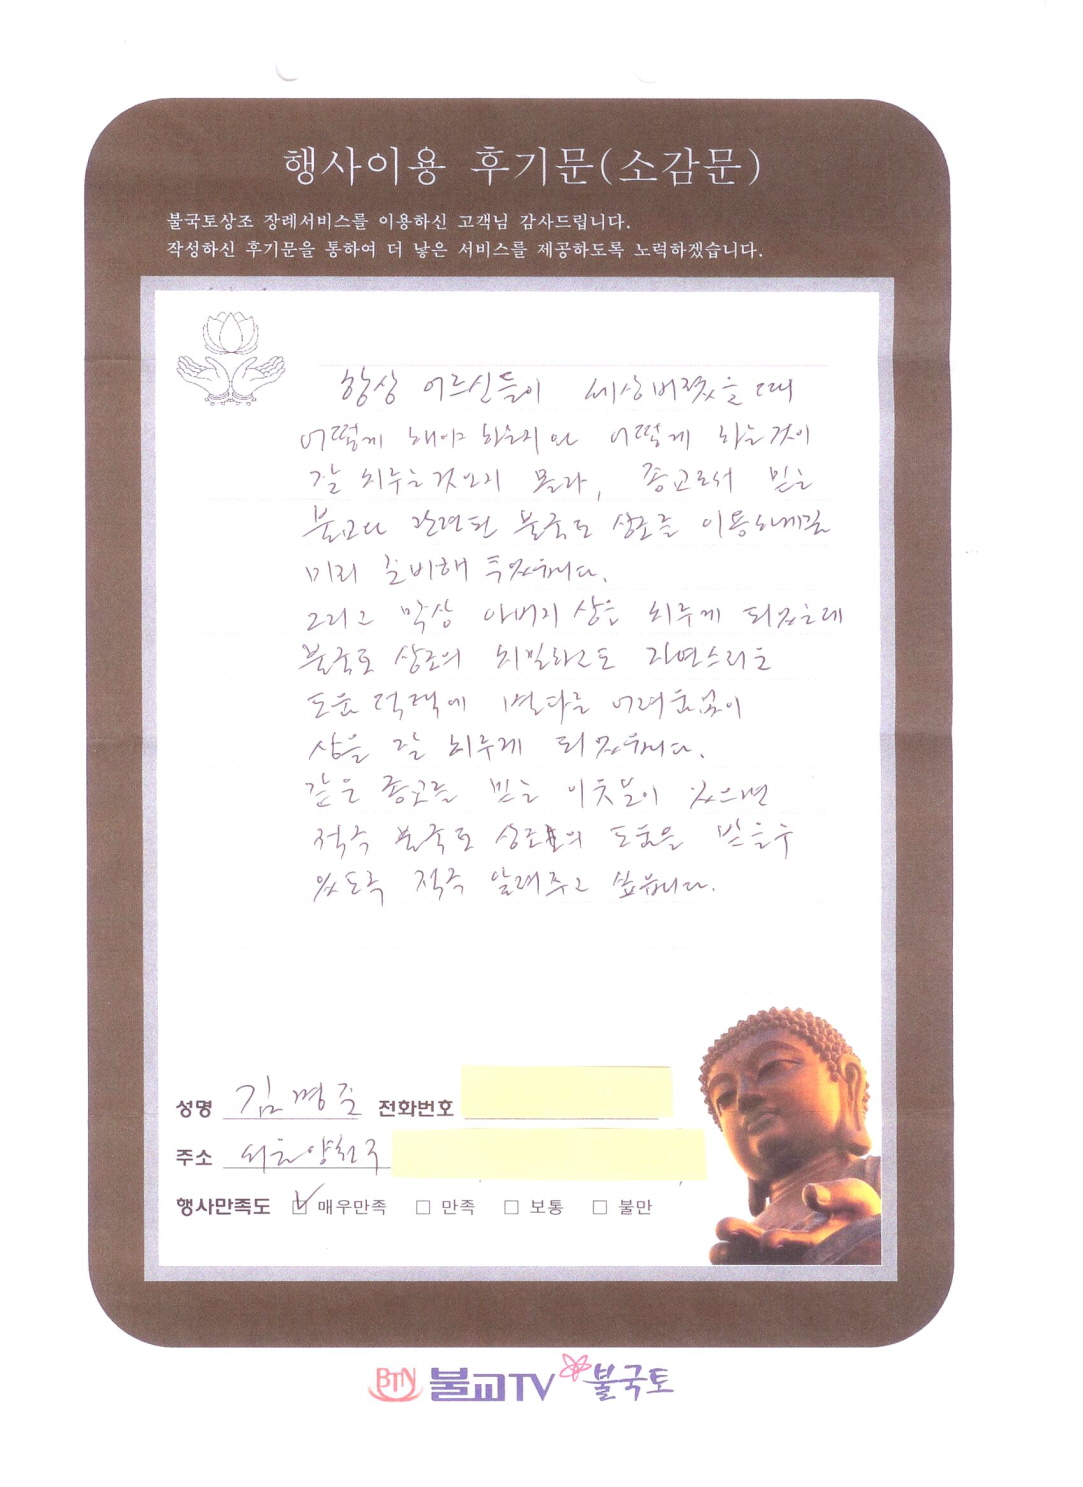 행사이용 후기문(소감문)
불국토상조 장례서비스를 이용하신 고객님 감사드립니다.
작성하신 후기문을 통하여 더 낳은 서비스를 제공하도록 노력하겠습니다.
항상 어르신들이 세상버렸을 때
어떻게 해야 하는지와 어떻게 하는것이
잘 치루는것인지 몰라, 종교로서 믿는
불교와 관련된 불국토 상조를 이용하게끔
미리 준비해 두었습니다.
그리고 막상 아버지 상을 치루게 되었는데
불국토 상조의 치밀하고도 자연스러운
도움 덕택에 별다른 어려움없이
상을 잘 치루게 되었습니다.
같은 종교를 믿는 이웃분이 있으면
적극 불국토 상조의 도움을 받을수
있도록 적극 알려주고 싶습니다.
성명 김명준 전화번호
주소 서울양천구
행사만족도 매우만족 만족 보통 불만
BTN 불교TV 불국토